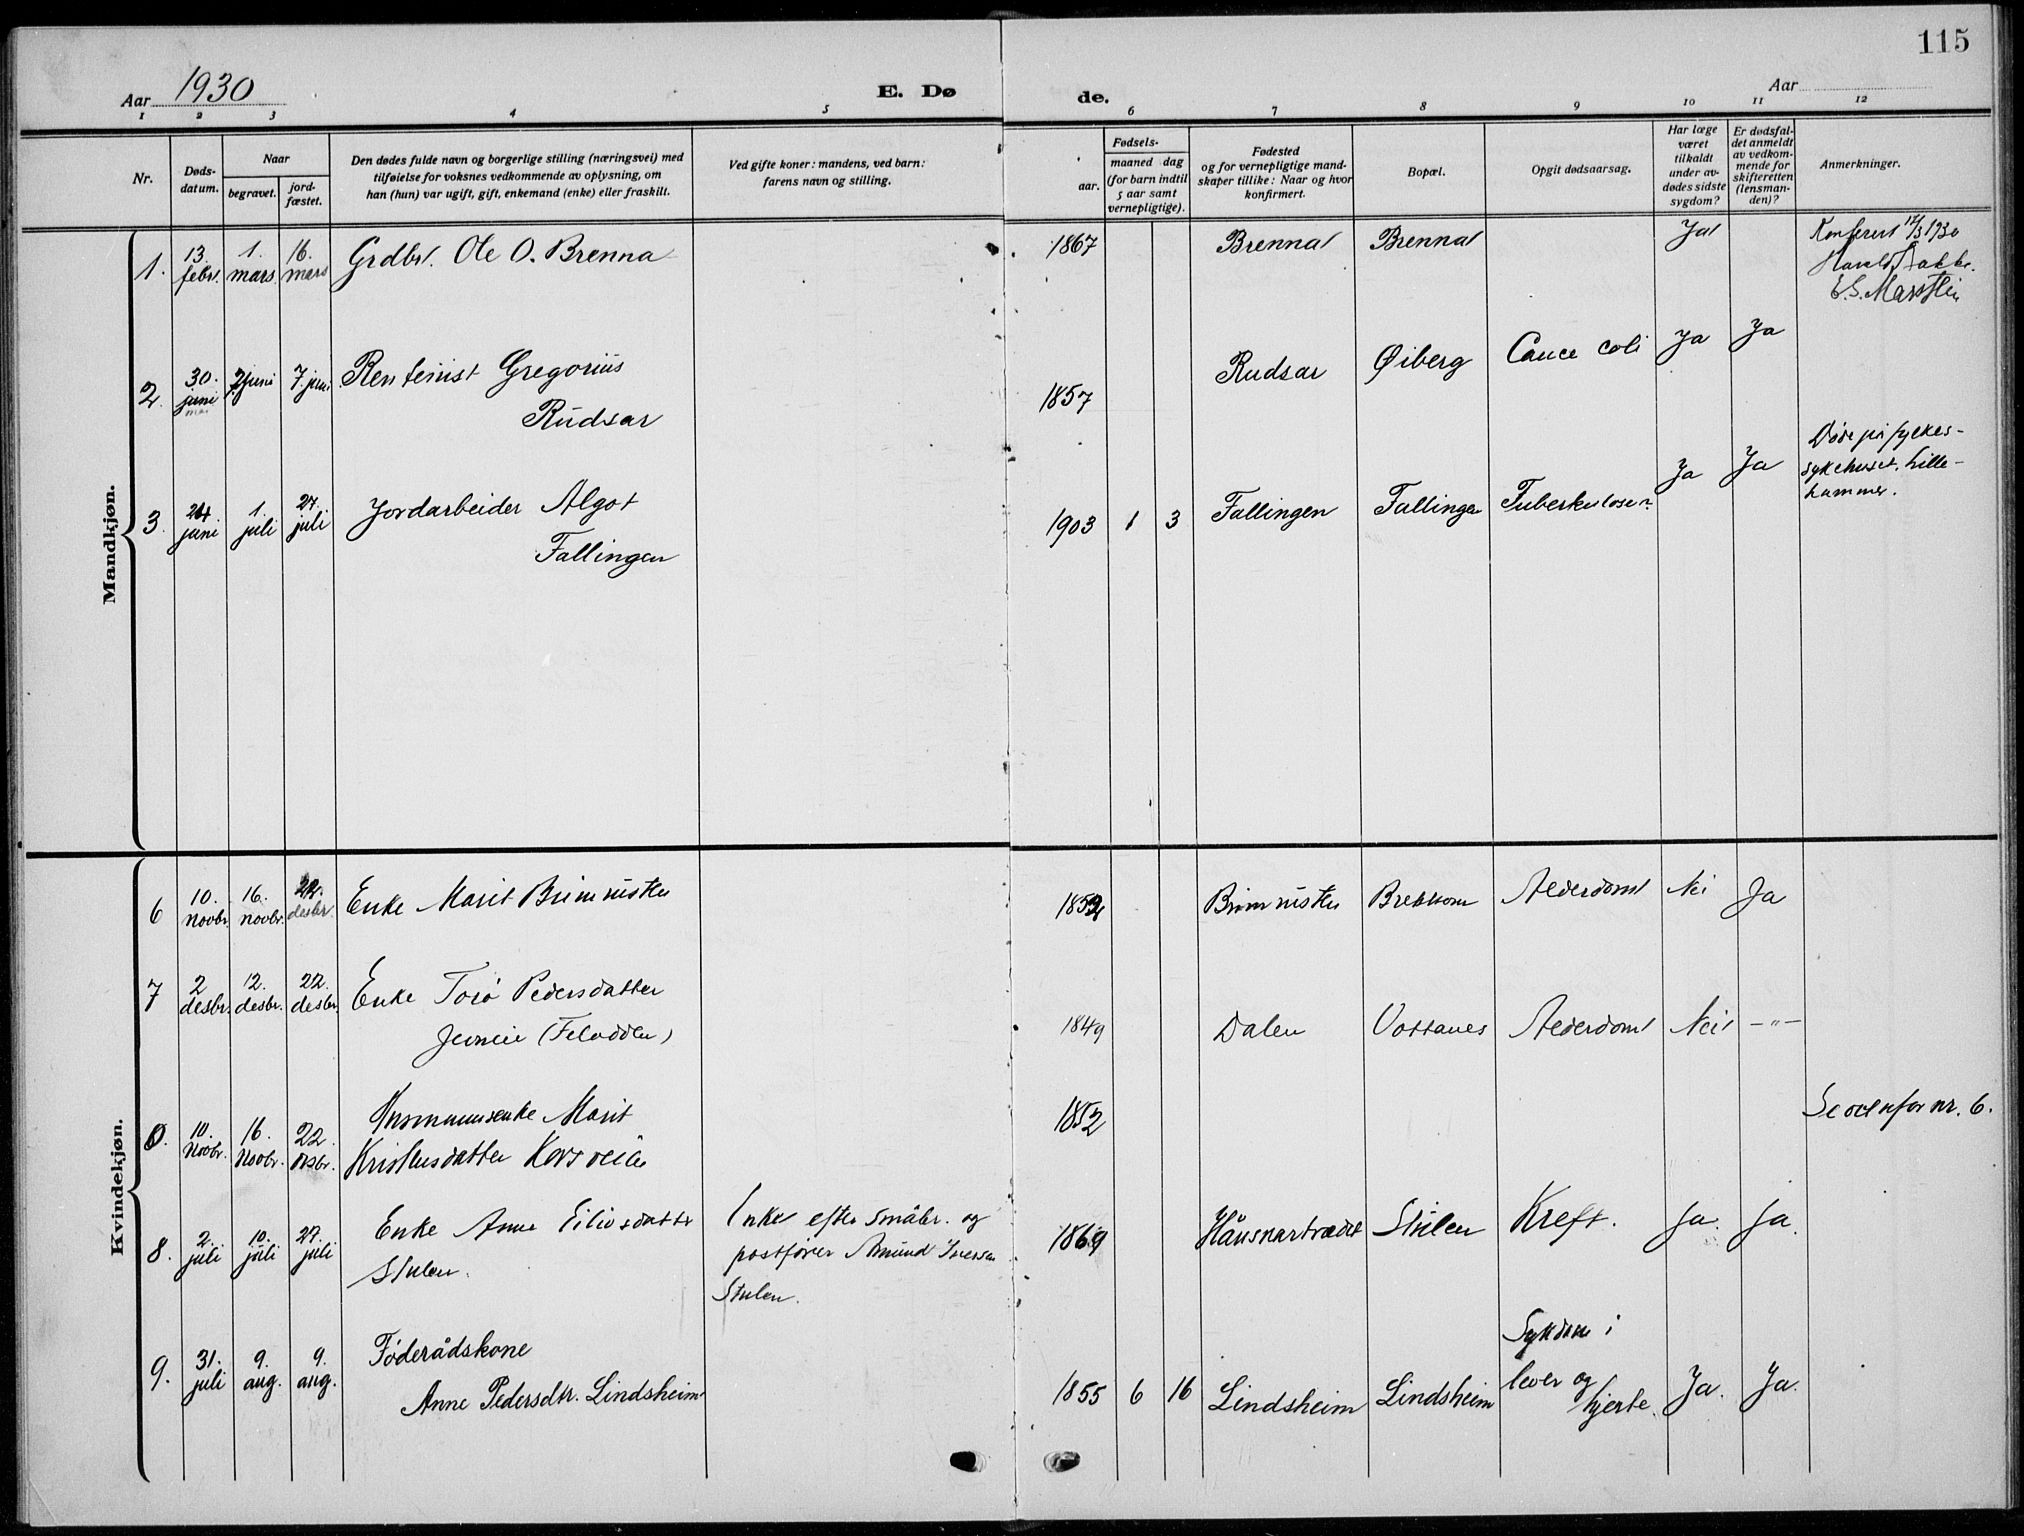 115
Aar 1930
E. Dø
de.
Aar
1 2 3 4 5 6 7 8 9 10 11 12
Nr.
Døds-
datum.
Naar
begravet.
jord-
fæstet.
Den dødes fulde navn og borgerlige stilling (næringsvei) med
tilføielse for voksnes vedkommende av oplysning, om
han (hun) var ugift, gift, enkemand (enke) eller fraskilt.
Ved gifte koner: mandens, ved barn:
farens navn og stilling.
Fødsels-
aar.
maaned dag
(for barn indtil
5 aar samt
vernepligtige).
Fødested
og for vernepligtige mand-
skaper tillike: Naar og hvor
konfirmert.
Bopæl.
Opgit dødsaarsag.
Har læge
været
tilkaldt
under av-
dødes sidste
sygdom?
Er dødsfal-
det anmeldt
av vedkom-
mende for
skifteretten
(lensman-
den)?
Anmerkninger.
Mandkjøn.
1. 13. febr. 1. mars 16. mars Grdbr. Ole O. Brenna 1867 Brenna Brenna Ja Konferert 17/3 1930
Harald Bakke.
E.S. Marstein
2. 30. juni mai 2 juni 7. juni Rentenist Gregorius
Rudsar 1857 Rudsar Øiberg Cance coli Ja Ja
3. 24 juni 1. juli 27. juli Jordarbeider Algot
Fallingen 1903 1 3 Fallingen Fallingen Tuberkulose Ja Ja Døde på fylkes-
sykehuset, Lille-
hammer.
Kvindekjøn.
6 10. novbr. 16. novbr. 22. desbr. Enke Marit 1852 Brekkom Alderdom Nei Ja
7 2 desbr. 12. desbr. 22. desbr. Enke Torø Pedersdatter
1849 Dalen Alderdom Nei -"-
0. 10. Novbr. 16. Novbr. 22. desbr. Marit
1852 Se ovenfor nr. 6.
8. 2. juli 10. juli 27. juli Enke Anne Eilivsdatter
Stulen. Enke efter småbr. og
postfører Amund Iversen
Stulen. 1869 Stulen Kreft. Ja. Ja.
9. 31. juli 9. aug. 9. aug. Føderådskone
Anne Pedersdtr. Lindsheim 1855 6 16 Lindsheim Lindsheim Sykdom i
lever og
hjerte. Ja. Ja.